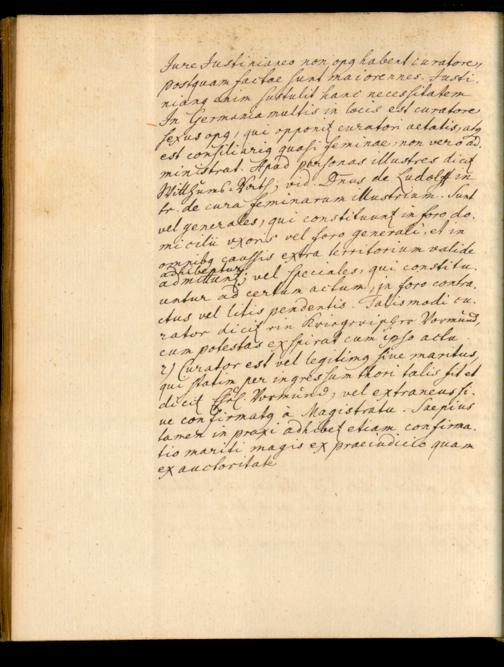 Jure Justinianeo non opq habent curatore,
postquam factae sunt maiorennes. Justi-
nianq enim sustulit hanc necessitatem
In Germania multis in locis est curatore
sexus opq, qui opponit curatori aetatis, atq
est consiliariq quasi feminae, non vero ad-
ministrat. Apud personas illustres dicit
vid. Dnus de Ludolff in
tr. de cura feminarum illustrium. Sunt
vel generales, qui constituunt in foro do-
micilii uxoris vel foro generali, et in
omnibq caussis extra territorium valide
adhibentur
admittunt; vel speciales, qui constitu-
untur ad certum actum, in foro contra-
ctus vel litis pendentis. Talismodi cu-
rator dicit ein Kriegischer Vormund,
cum potestas exspirat cum ipso actu
2) Curator est vel legitimq sive maritus,
qui statim per ingressum thori talis fit et
dicit Ehel. Vormund, vel extraneus si-
ve confirmatq à Magistratu. Saepius
tamen in praxi adhibet etiam confirma-
tio mariti magis ex praeiudicio quam
ex auctoritate